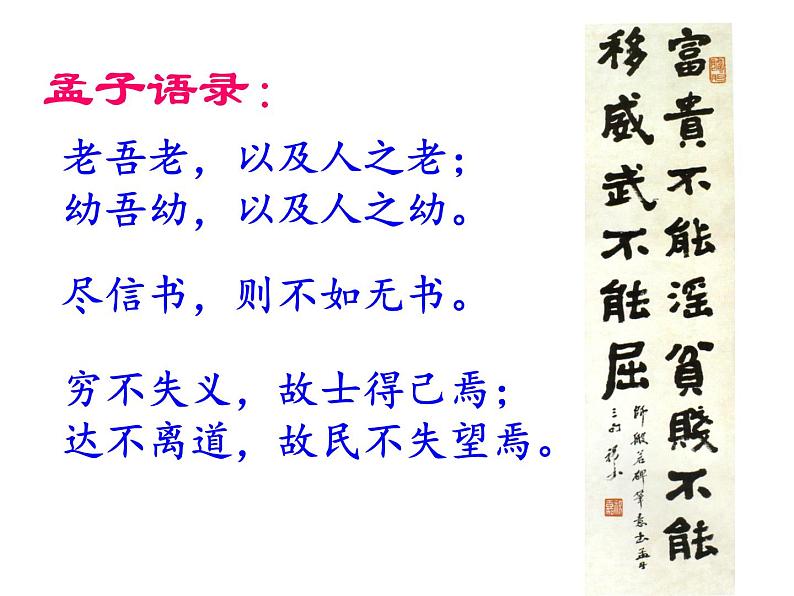 孟子语录：
老吾老，以及人之老；
幼吾幼，以及人之幼。
尽信书，则不如无书。
穷不失义，故士得己焉；
达不离道，故民不失望焉。
富貴不能淫貧賤不能
移威武不能屈